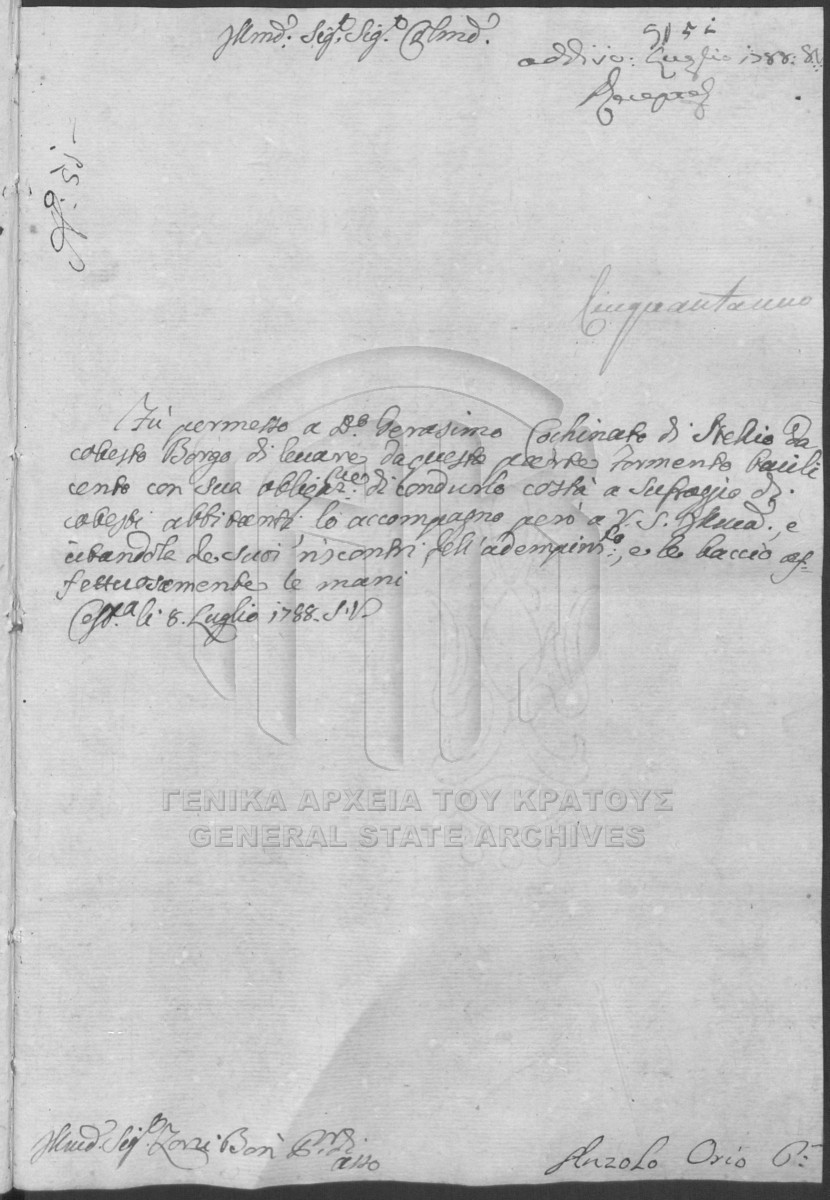 Illmo: Sigr. Sigr. Colmo.
51 5i
addi 10: Luglio 1788: S:V
Recepta
N: 51 –
Cinquantauno
Fù permesso a Do. Gerasimo Cochinato di Stelio da
cotesto Borgo di levare da questa parte formento bacili
cento con sua obligazne. di condurlo costà a sufragio di
cotesti abbitanti lo accompagno però a V. S. Illma., e
itandole de suoi riscontri dell'adempimto:, e le baccio af=
fettuosamente le mani
li 8. Luglio 1788. S:V
ΓΕΝΙΚΑ ΑΡΧΕΙΑ ΤΟΥ ΚΡΑΤΟΥΣ
GENERAL STATE ARCHIVES
Illmo. Sigr. Zorzi Bon Pr. di
asso
Anzolo Orio P: